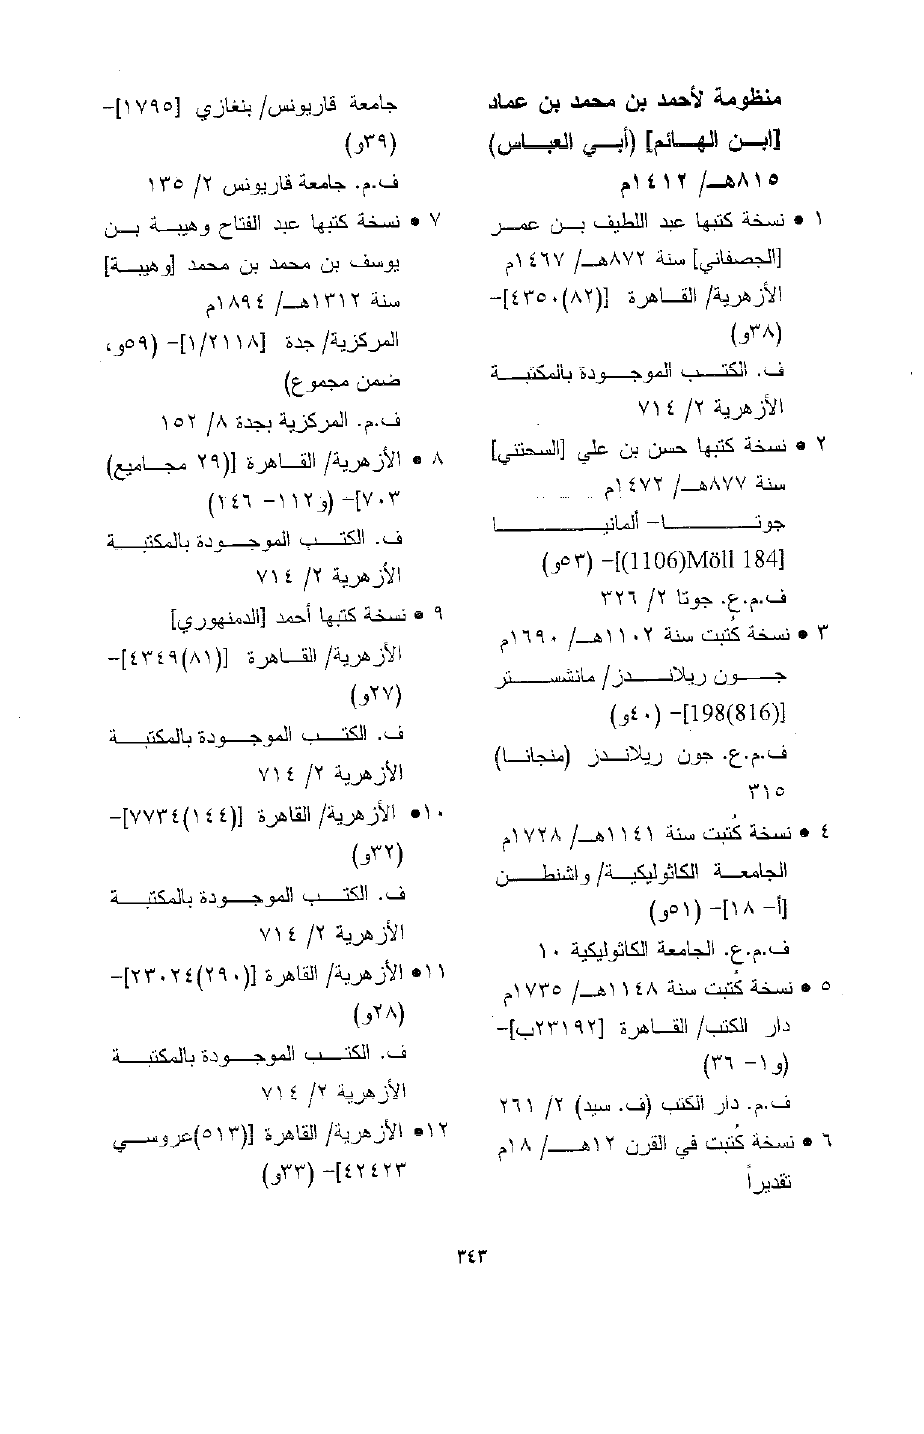 منظومة لأحمد بن محمد بن عماد
[ابن الهائم] (أبي العباس)
٨١٥هـ/ ١٤١٢م
١ • نسخة كتبها عبد اللطيف بن عمر
[الجصفاني] سنة ٨٧٢هـ/ ١٤٦٧م
الأزهرية/ القاهرة [(٨٢)٤٣٥٠]-
(٣٨و)
ف. الكتب الموجودة بالمكتبة
الأزهرية ٢/ ٧١٤
٢ • نسخة كتبها حسن بن علي [السحتني]
سنة ٨٧٧هـ/ ١٤٧٢م
جوتا- ألمانيا
[(1106)Möll 184]- (٥٣و)
ف.م.ع. جوتا ٢/ ٣٢٦
٣ • نسخة كُتبت سنة ١١٠٢هـ/ ١٦٩٠م
جون ريلاندز/ مانشستر
[198(816)]- (٤٠و)
ف.م.ع. جون ريلاندز (منجانا)
٣١٥
٤ • نسخة كُتبت سنة ١١٤١هـ/ ١٧٢٨م
الجامعة الكاثوليكية/ واشنطن
[أ- ١٨]- (٥١و)
ف.م.ع. الجامعة الكاثوليكية ١٠
٥ • نسخة كُتبت سنة ١١٤٨هـ/ ١٧٣٥م
دار الكتب/ القاهرة [٢٣١٩٢ب]-
(و١- ٣٦)
ف.م. دار الكتب (ف. سيد) ٢/ ٢٦١
٦ • نسخة كُتبت في القرن ١٢هـ/ ١٨م
تقديراً
جامعة قاريونس/ بنغازي [١٧٩٥]-
(٣٩و)
ف.م. جامعة قاريونس ٢/ ١٣٥
٧ • نسخة كتبها عبد الفتاح وهيبة بن
يوسف بن محمد بن محمد [وهيبة]
سنة ١٣١٢هـ/ ١٨٩٤م
المركزية/ جدة [١/٢١١٨]- (٥٩و،
ضمن مجموع)
ف.م. المركزية بجدة ٨/ ١٥٢
٨ • الأزهرية/ القاهرة [(٢٩ مجاميع)
٧٠٣]- (و١١٢- ١٤٦)
ف. الكتب الموجودة بالمكتبة
الأزهرية ٢/ ٧١٤
٩ • نسخة كتبها أحمد [الدمنهوري]
الأزهرية/ القاهرة [(٨١)٤٣٤٩]-
(٢٧و)
ف. الكتب الموجودة بالمكتبة
الأزهرية ٢/ ٧١٤
١٠• الأزهرية/ القاهرة [(١٤٤)٧٧٣٤]-
(٣٢و)
ف. الكتب الموجودة بالمكتبة
الأزهرية ٢/ ٧١٤
١١• الأزهرية/ القاهرة [(٢٩٠)٢٣٠٢٤]-
(٢٨و)
ف. الكتب الموجودة بالمكتبة
الأزهرية ٢/ ٧١٤
١٢• الأزهرية/ القاهرة [(٥١٣)عروسي
٤٢٤٢٣]- (٣٣و)
٣٤٣